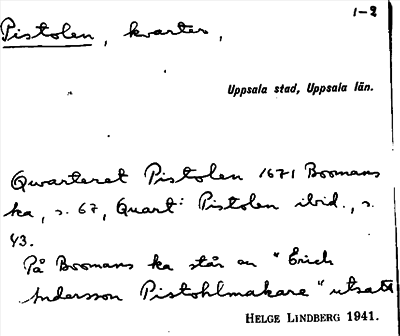 1-2
Pistolen, kvarter,
Uppsala stad, Uppsala län.
Qvarteret Pistolen 1671 Boomans
ka, s. 67, Quart: Pistolen ibid., s.
43.
På Boomans ka står en "Erich
Andersson Pistohlmakare" utsatt
HELGE LINDBERG 1941.